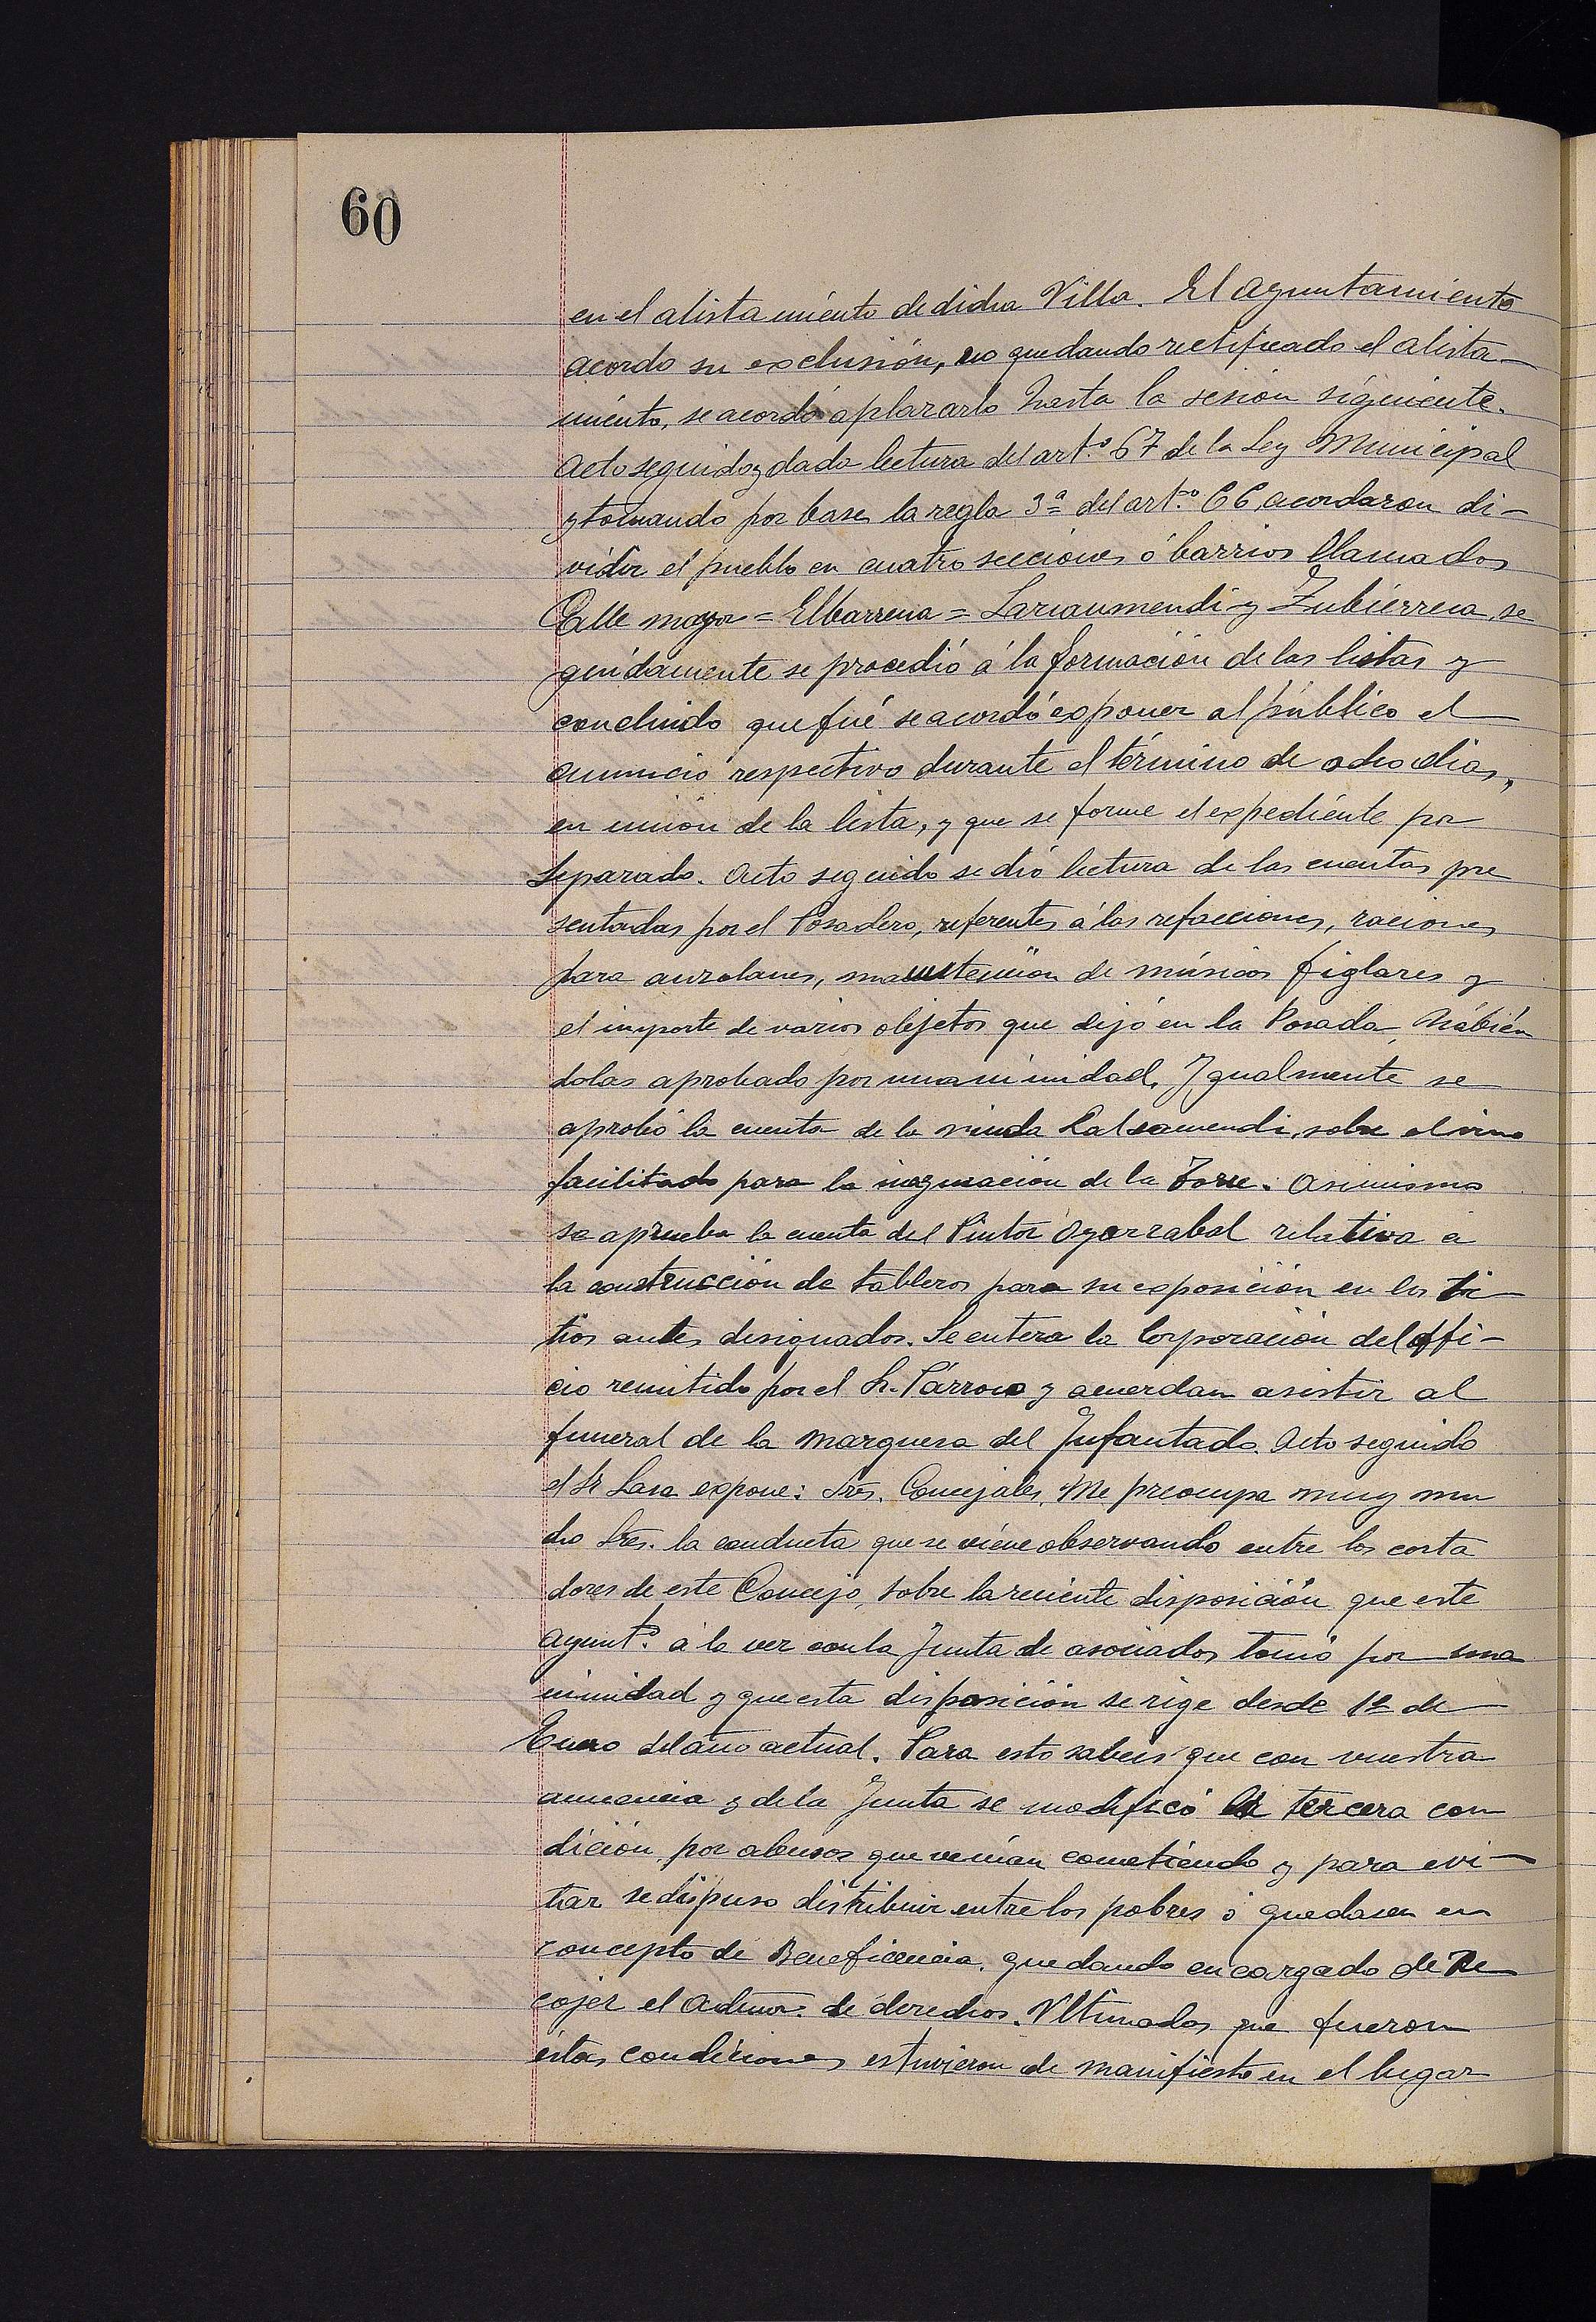 60
en el alistamiento de dicha Villa. El Ayuntamiento
acordo su exclusión, no quedando rectificado el alista-
miento, se acordó aplazarlo hasta la sesión siguiente.
Acto seguido y dada lectura del art.º 67 de la Ley Municipal
y tomando por base la regla 3ª del art.º 66, acordaron di-
vidir el pueblo en cuatro secciones ó barrios llamados
Calle mayor = Elbarrena = Lariaumendi y Zubierreca, se
guidamente se procedió á la formación de las listas y
concluido que fué se acordó exponer al público el
anuncio respectivo durante el término de ocho dias,
en unión de la lista, y que se forme el expediente por
separado. Acto seguido se dió lectura de las cuentas pre
sentadas por el Posadero, referentes á las refacciones, raciones
para auzolanes, manutención de músicos figlares y
el importe de varios objetos que dejó en la Posada, habién
dolas aprobado por unanimidad. Igualmente se
aprobó la cuenta de la viuda Latsamendi, sobre el vino
facilitado para la inaguración de la Torre. Asimismo
se aprueba la cuenta del Pintor Oyarzabal relativa a
la construcción de tableros para su exposición en los si
tios antes designados. Se entera la Corporación del ofi-
cio remitido por el Sr. Párroco y acuerdan asistir al
funeral de la Marquesa del Infantado. Acto seguido
el Sr Lasa expone: Sres. Concejales, Me preocupa muy mu
cho Sres. la conducta que se viene observando entre los corta
dores de este Concejo, sobre la reciente disposición que este
Ayunt.º a la vez con la Junta de asociados tomó por una
nimidad y que esta disposición se rige desde 1º de
Enero del año actual. Para esto sabeis que con vuestra
anuencia y de la Junta se modificó la tercera con
dición, por abusos que venían cometiendo y para evi-
tar se dispuso distribuir entre los pobres ó quedasen en
concepto de Beneficencia, quedando encargado de Re
cojer el Admor. de derechos. Ultimados que fueron
estas condiciones estuvieron de manifiesto en el lugar